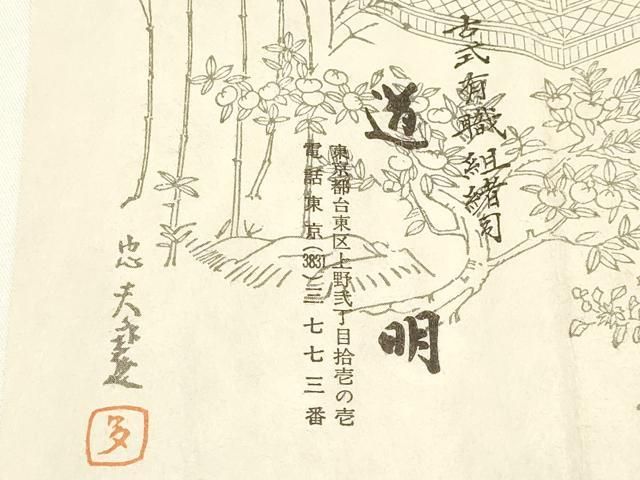 古式有職組緒司
道明
東京都台東区上野弐丁目拾壱の壱
電話東京(3831)三七七三番
忠夫